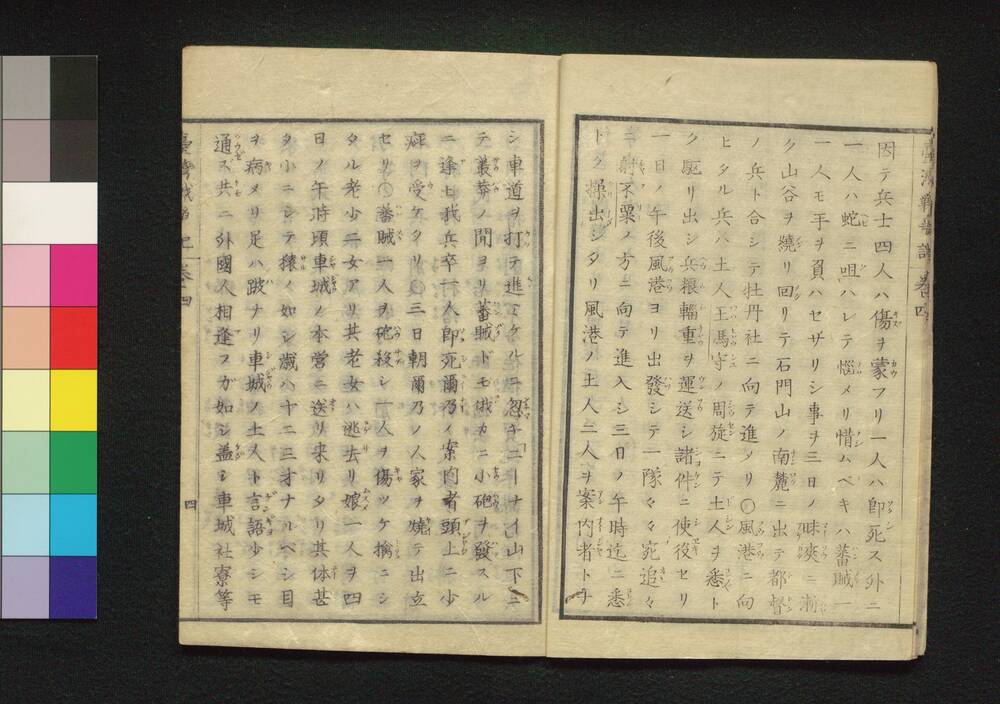 因テ兵士四人ハ傷ヲ蒙フリ一人ハ即死ス外ニ
一人ハ蛇ニ咀ハレテ惱メリ惜ムベキハ蕃賊一
一人モ手ヲ負ハセザリシ事ヲ三日ノ昧爽ニ漸
ク山谷ヲ繞リ回リテ石門山ノ南麓ニ出テ都督
ノ兵ト合シテ牡丹社ニ向テ進メリ〇風港ニ向
ヒタル兵ハ土人王馬守ノ周旋ニテ土人ヲ悉ト
ク駆リ出シ兵粮輜重ヲ運送シ諸件ニ使役セリ
一日ノ午後風港ヨリ出發シテ一隊々々宛追々
ニ射不粟ノ方ニ向テ進入シ三日ノ午時迄ニ悉
トク操出シタリ風港ノ土人二人ヲ案内者トナ
シ車道ヲ打テ進ミケルニ忽チニーナイ山下ニ
テ叢莽ノ間ヨリ蕃賊ドモ俄カニ小砲ヲ發スル
ニ逢ヒ我兵卒一人即死爾乃ノ案内者頭上ニ少
疵ヲ受ケタリ三日朝爾乃ノ人家ヲ燒テ出立
セリ〇蕃賊一人ヲ砲殺シ一人ヲ傷ツケ擒ニシ
タル老少二女アリ其老女ハ逃去リ娘一人ヲ四
日ノ午時頃車城ノ本營ニ送リ来リタリ其体甚
タ小ニシテ猿ノ如シ歳ハ十二三才ナルベシ目
ヲ病メリ足ハ跛ナリ車城ノ土人ト言語少シモ
通ズ共ニ外國人相逢フガ如シ蓋シ車城社寮等
四